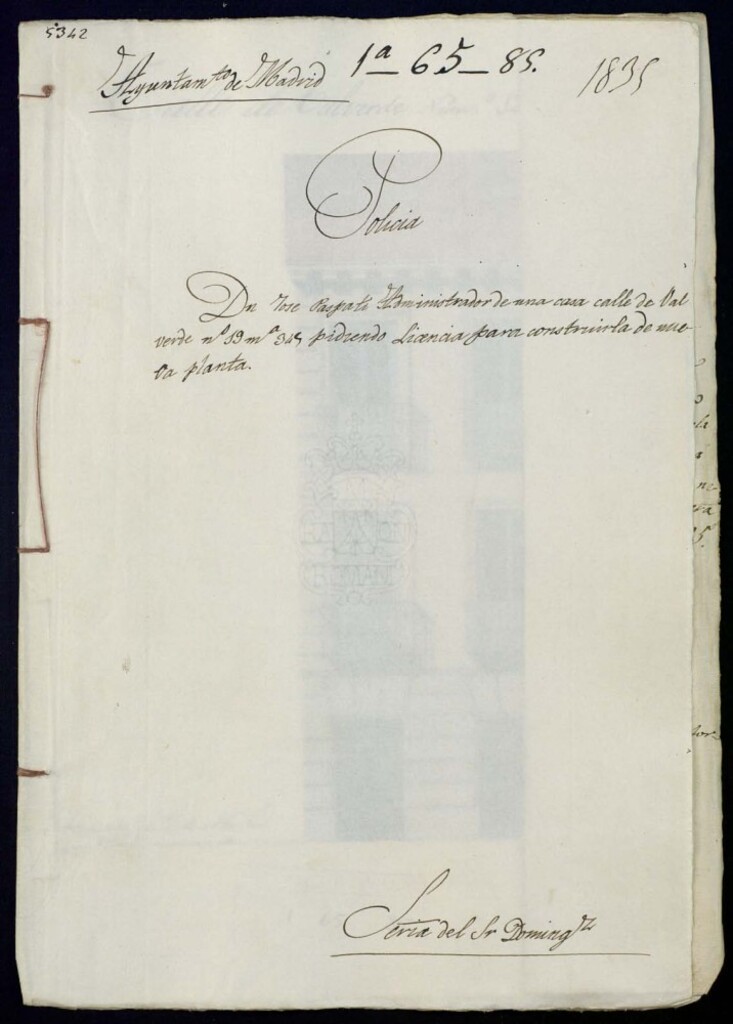 5342
Ayuntamto de Madrid
1a-65-85.
1835
Policia
Dn Jose Paspati Administrador de una casa calle de Val
verde no 19 ma 345 pidiendo Licencia para construirla de nue-
va planta.
Sería del Sr Domingz